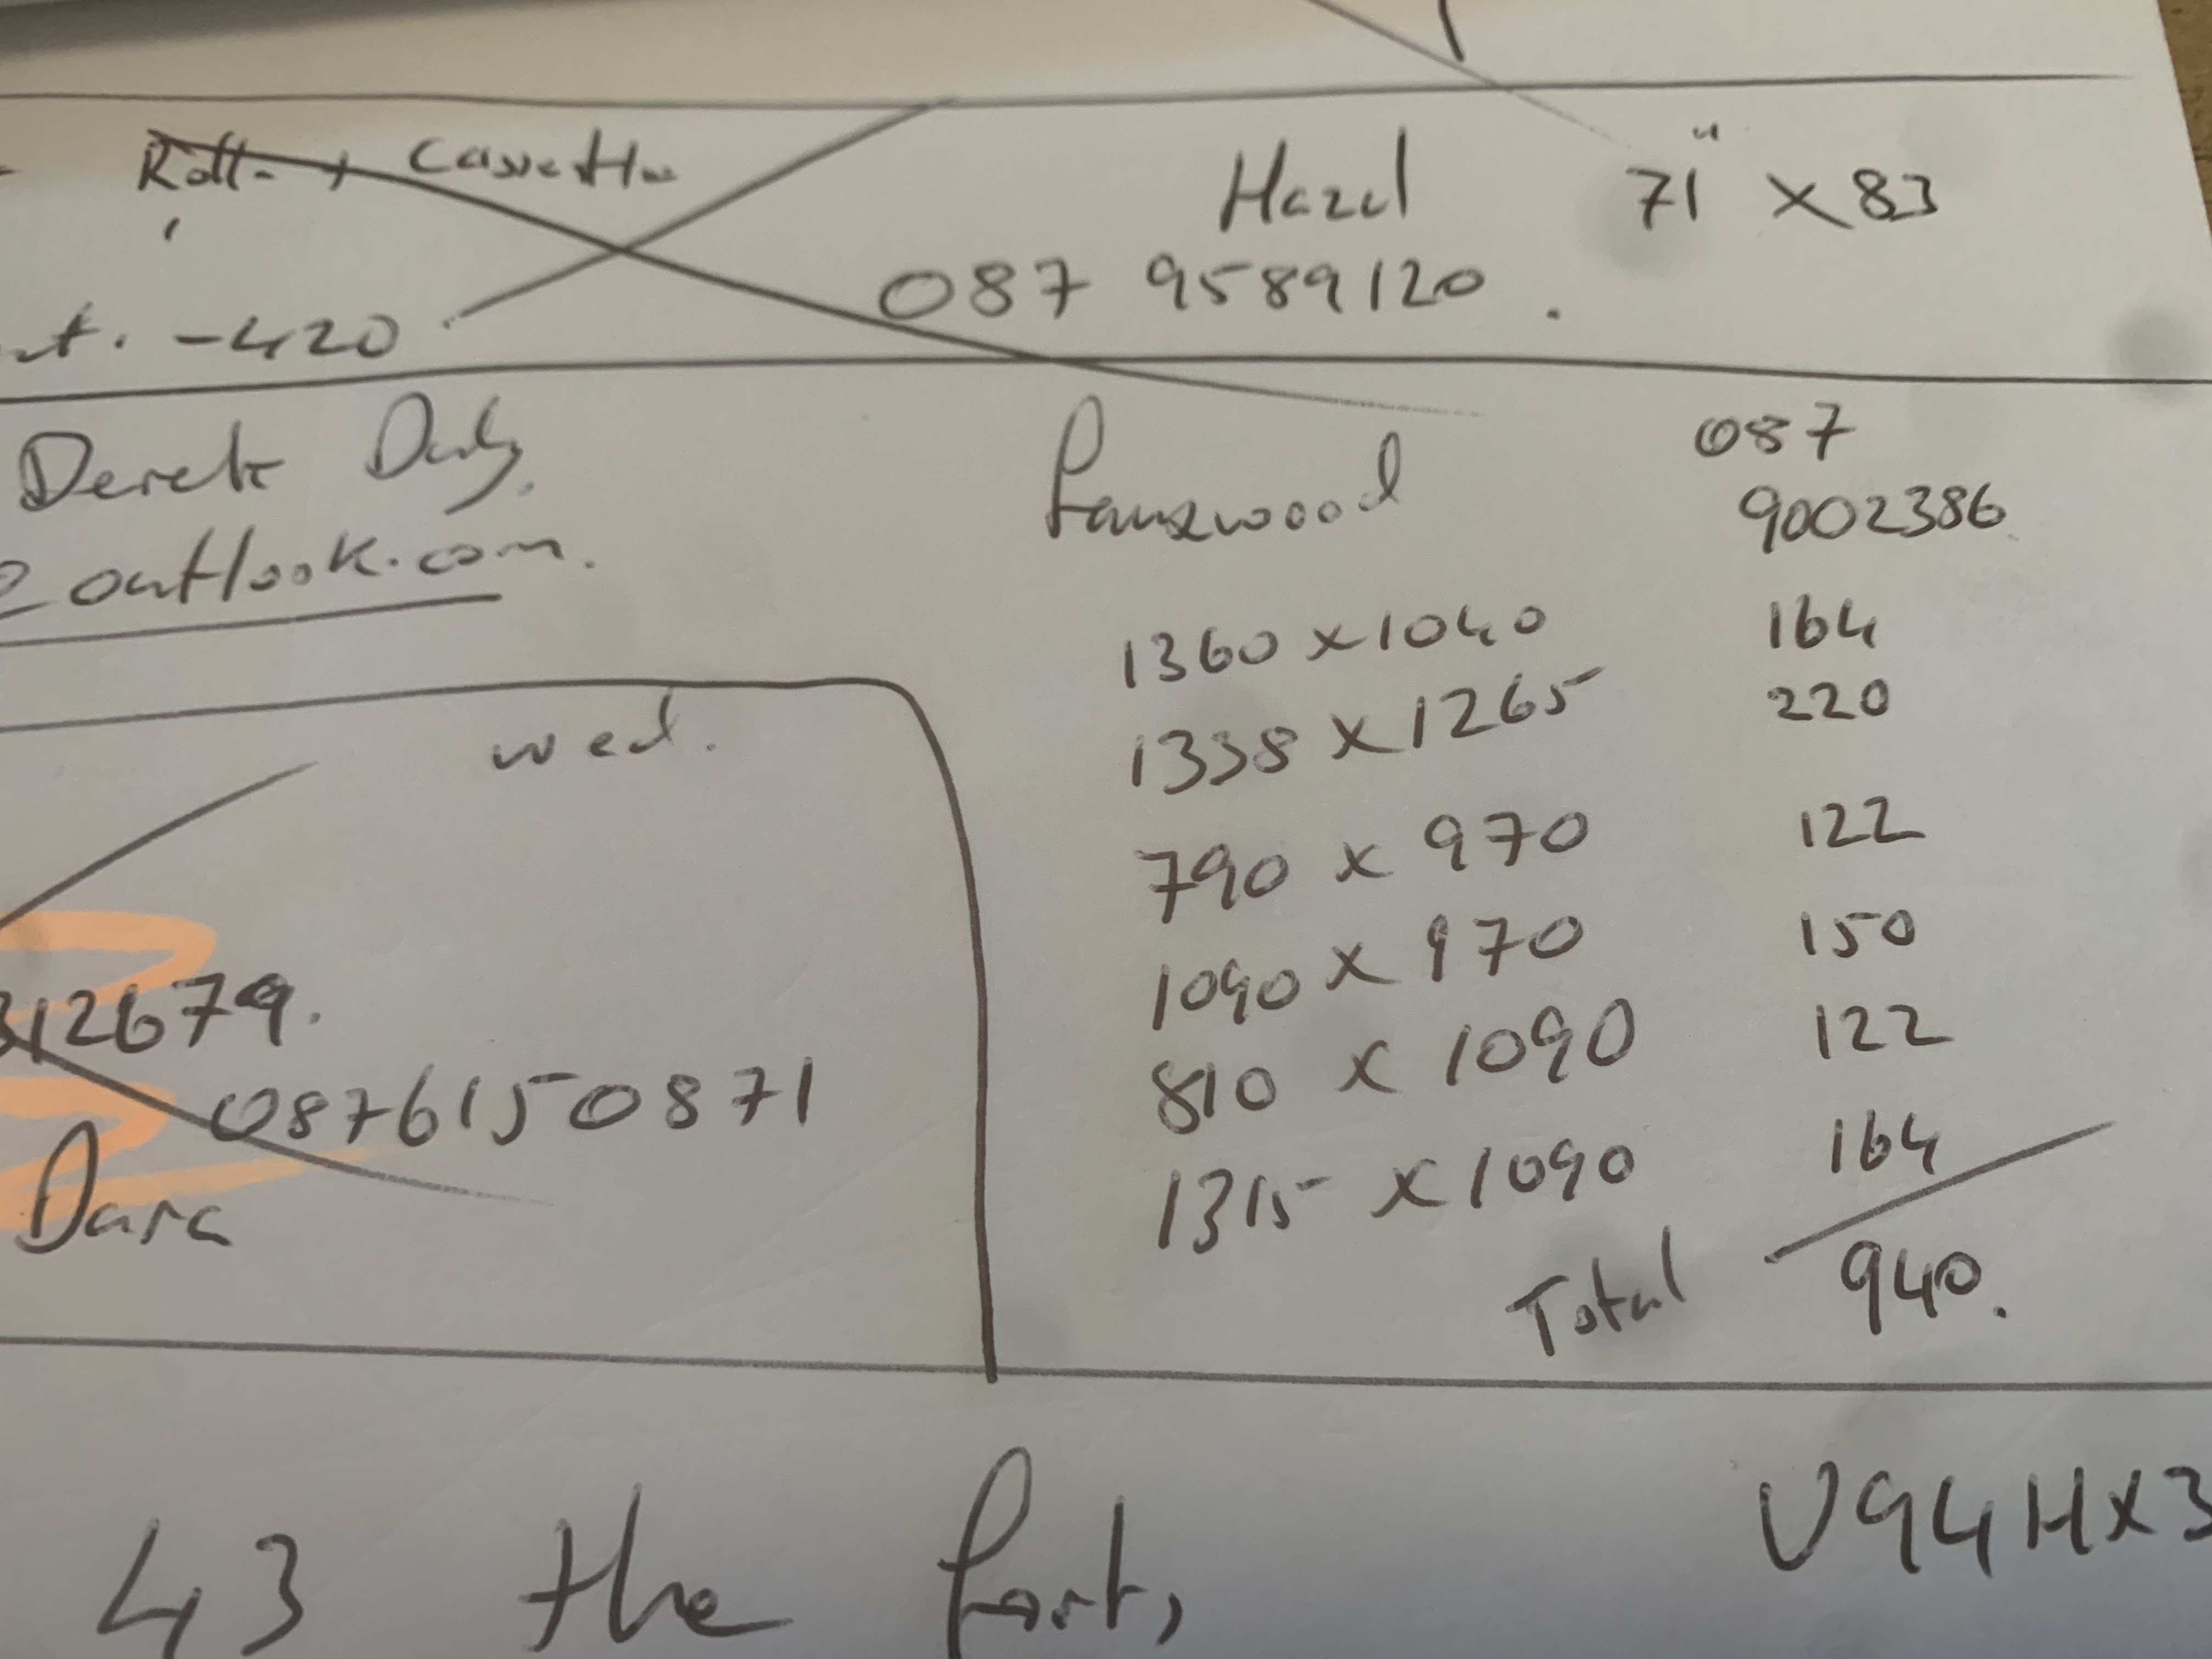 Roll - + Cassette
Hazel 71" x 83
087 9589120 .
. -420
Derek Daly.
087
9002386.
outlook.com.
1360 x 1040 164
1338 x 1265 220
wed.
790 x 970 122
1090 x 970 150
810 x 1090 122
1315 x 1090 164
Total 940.
312679.
0876150871
Dara
43 the Fort,
V94HX3